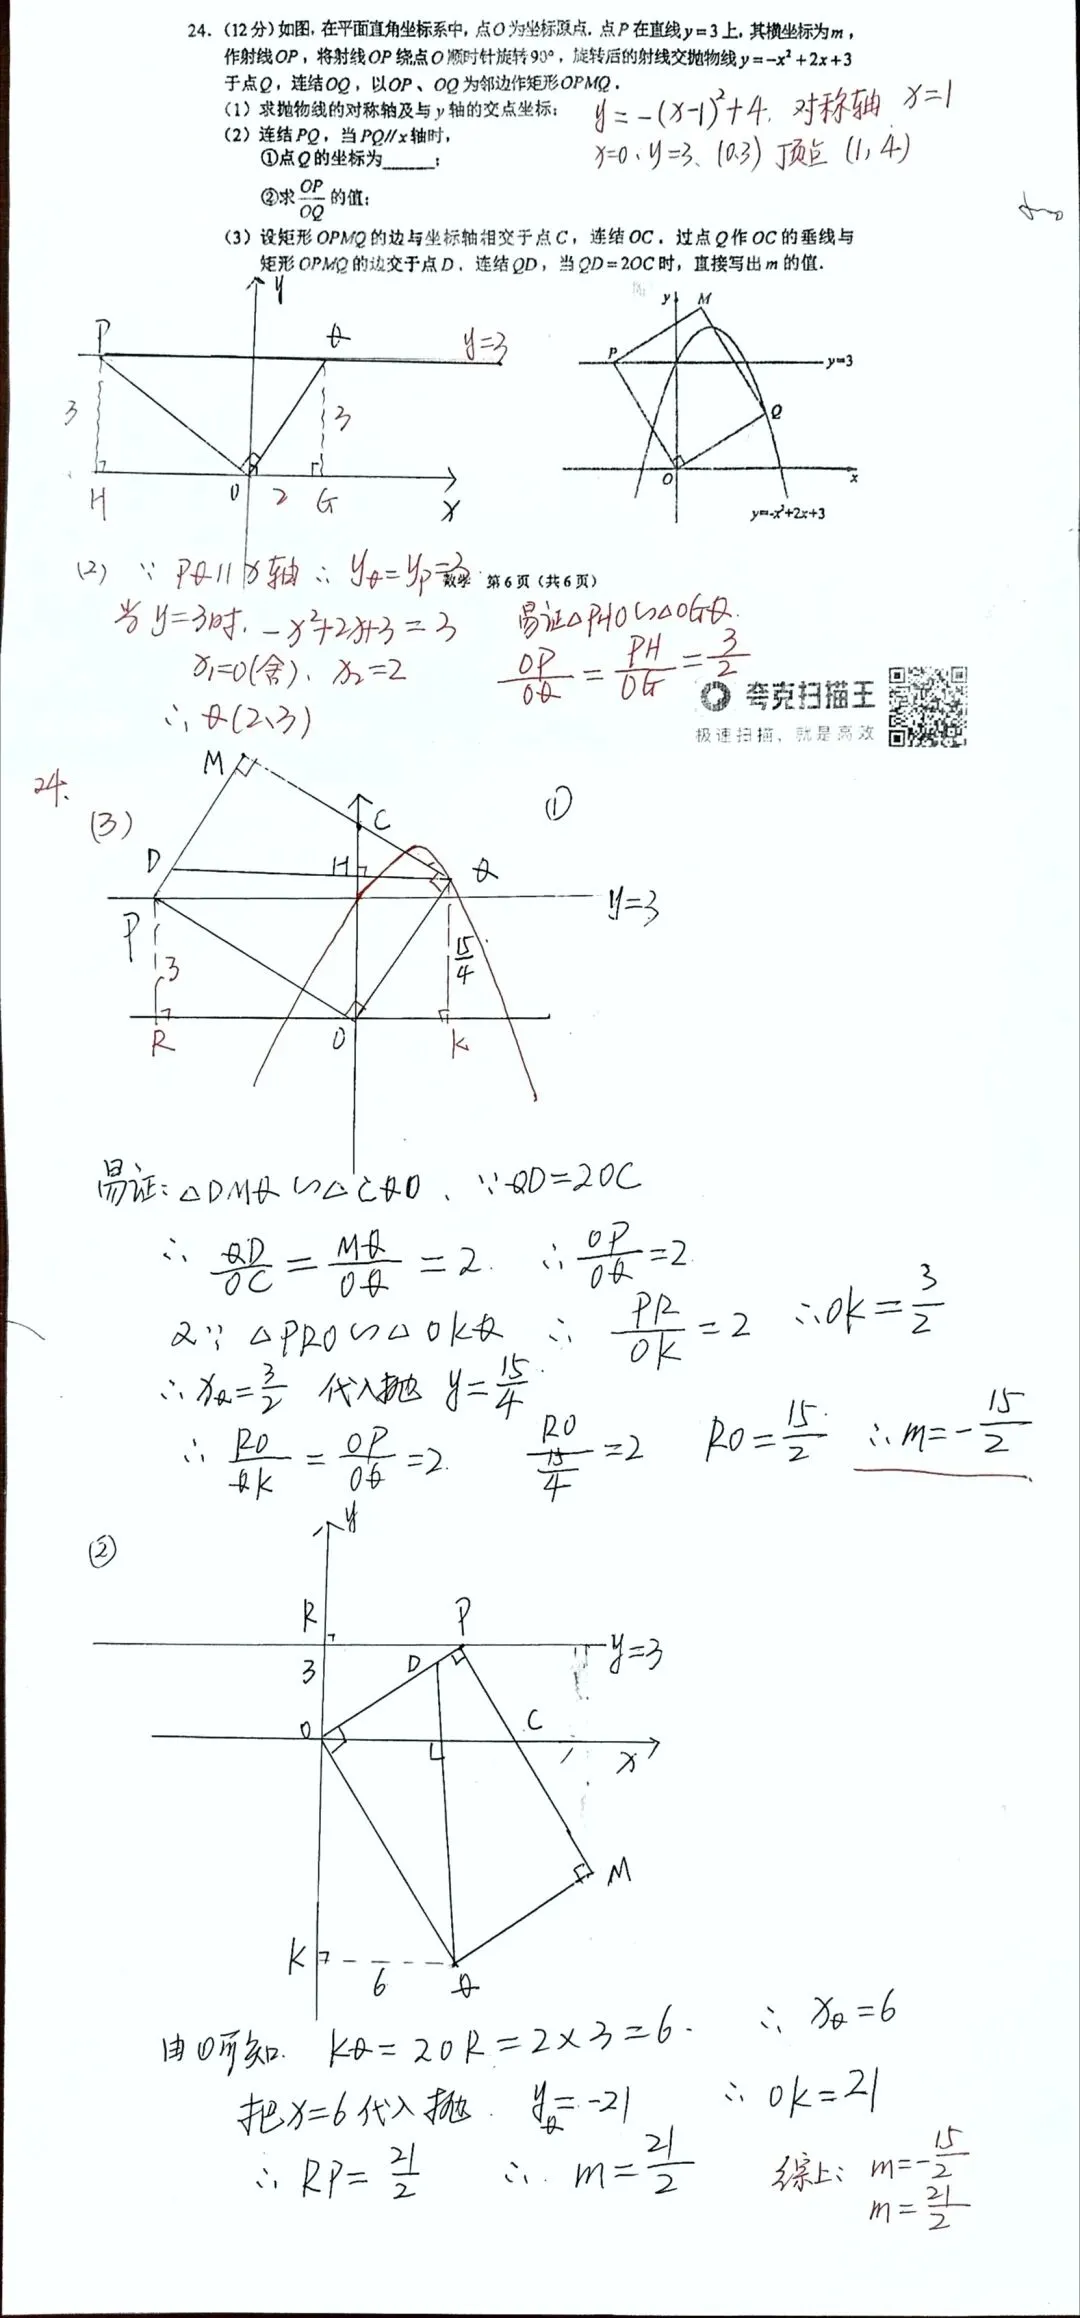 24. (12分)如图,在平面直角坐标系中,点O为坐标原点.点P在直线y=3上,其横坐标为m,
作射线OP,将射线OP绕点O顺时针旋转90°,旋转后的射线交抛物线y=-x²+2x+3
于点Q,连结OQ,以OP、OQ为邻边作矩形OPMQ.
(1)求抛物线的对称轴及与y轴的交点坐标;
y=-(x-1)²+4. 对称轴 x=1
(2)连结PQ,当PQ∥x轴时,
x=0、y=3、(0.3) 顶点 (1,4)
①点Q的坐标为______;
②求OP/OQ的值;
(3)设矩形OPMQ的边与坐标轴相交于点C,连结OC.过点Q作OC的垂线与
矩形OPMQ的边交于点D.连结QD,当QD=2OC时,直接写出m的值.
y
P
Q
y=3
3
3
H
O
2
G
x
y
M
P
y=3
Q
O
x
y=-x²+2x+3
(2) ∵ PQ∥x轴 ∴ yQ=yP=3
数学 第6页(共6页)
当y=3时. -x²+2x+3=3
易证△PHO∽△OGQ.
x₁=0(舍)、x₂=2
OP/OQ = PH/OG = 3/2
∴ Q(2、3)
夸克扫描王
极速扫描,就是高效
24.
(3)
①
M
C
D
H
Q
P
y=3
3
15/4
R
O
K
易证:△DMQ∽△CQO、∵QD=2OC
∴ QD/OC = MQ/OQ = 2. ∴ OP/OQ=2.
又∵ △PRO∽△OKQ ∴ PR/OK=2 ∴OK=3/2
∴xQ=3/2 代入抛 y=15/4.
∴ RO/QK = OP/OQ=2. RO/(15/4)=2 RO=15/2. ∴m=-15/2
②
y
R
P
y=3
3
D
O
C
x
M
K
6
Q
由①可知. KQ=2OR=2×3=6. ∴ xQ=6
把x=6代入抛. yQ=-21 ∴ OK=21
∴ RP=21/2 ∴ m=21/2
综上: m=-15/2
m=21/2